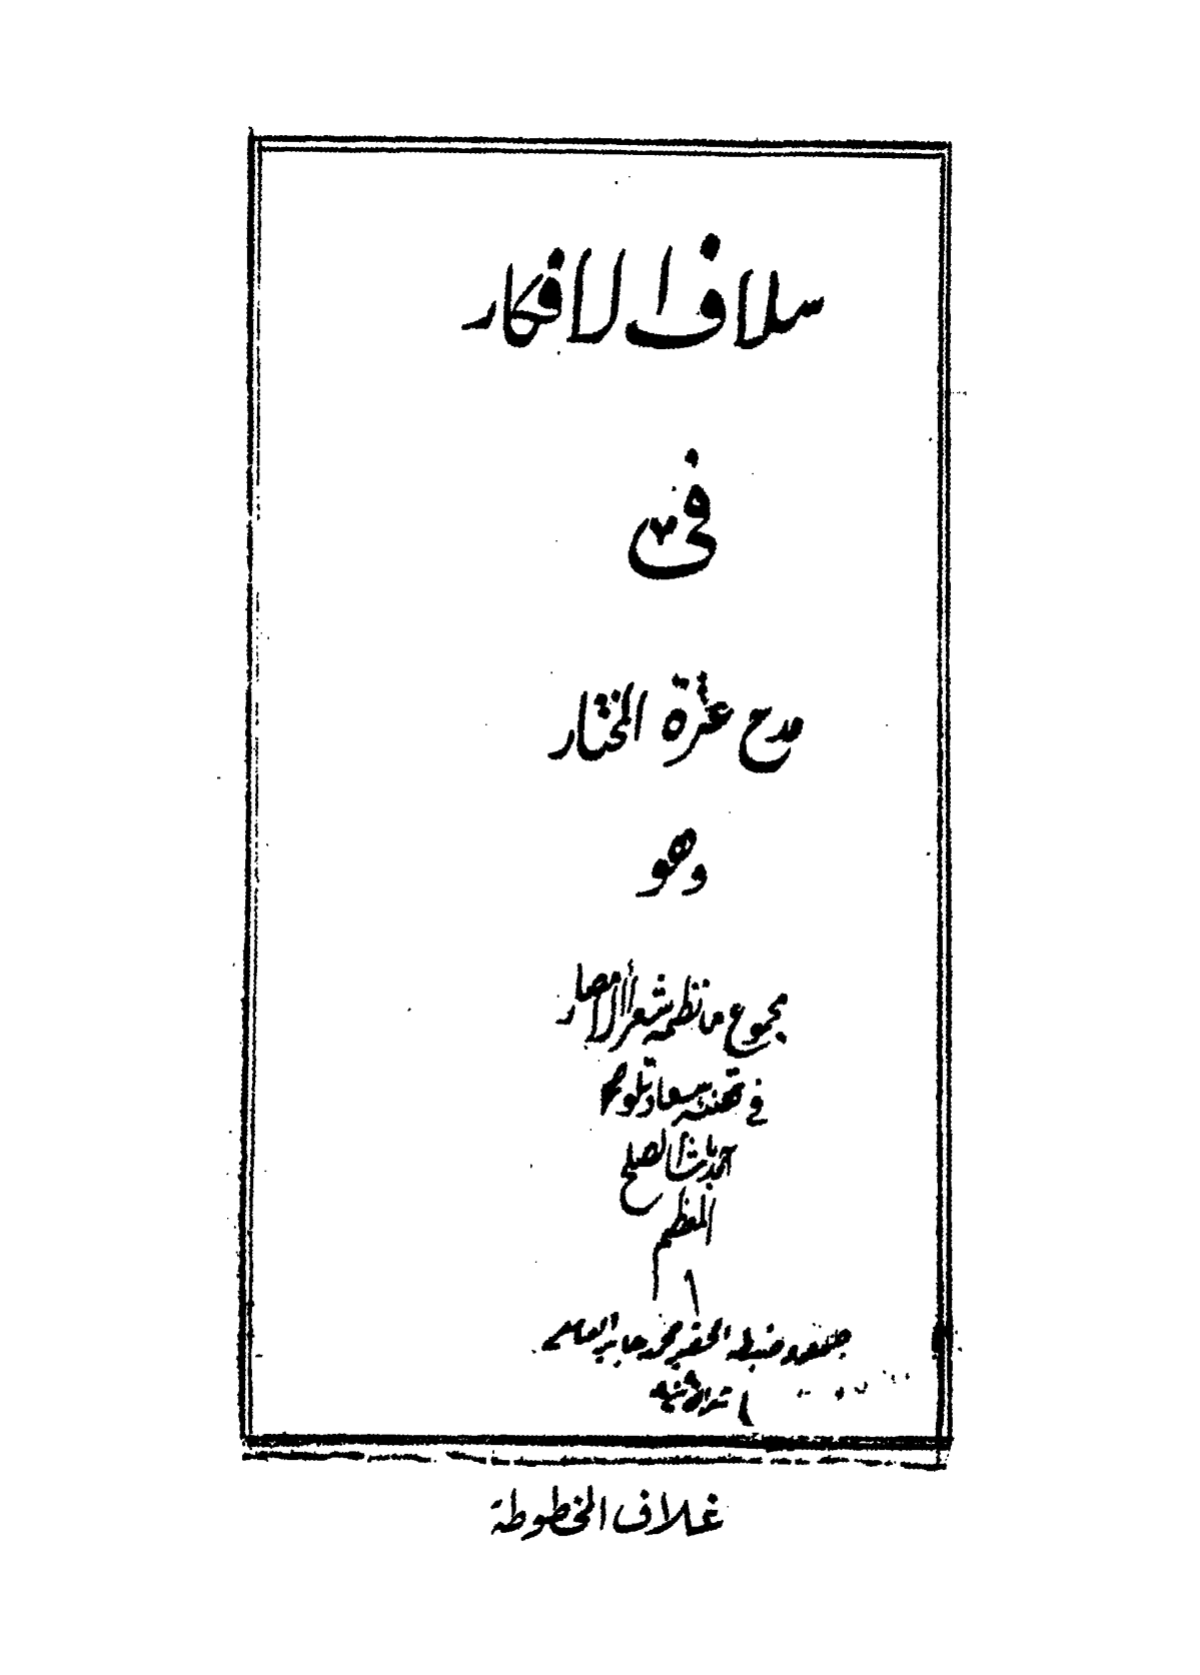 سلاف الافكار
فى
مدح عترة المختار
وهو
مجموع ما نظمه شعرأ الامصار
في تهنئة سعادتلو
احمد باشا الصلح
المعظم
جمعه وضبطه الحقير محمد جابر العاملي
غلاف المخطوطة